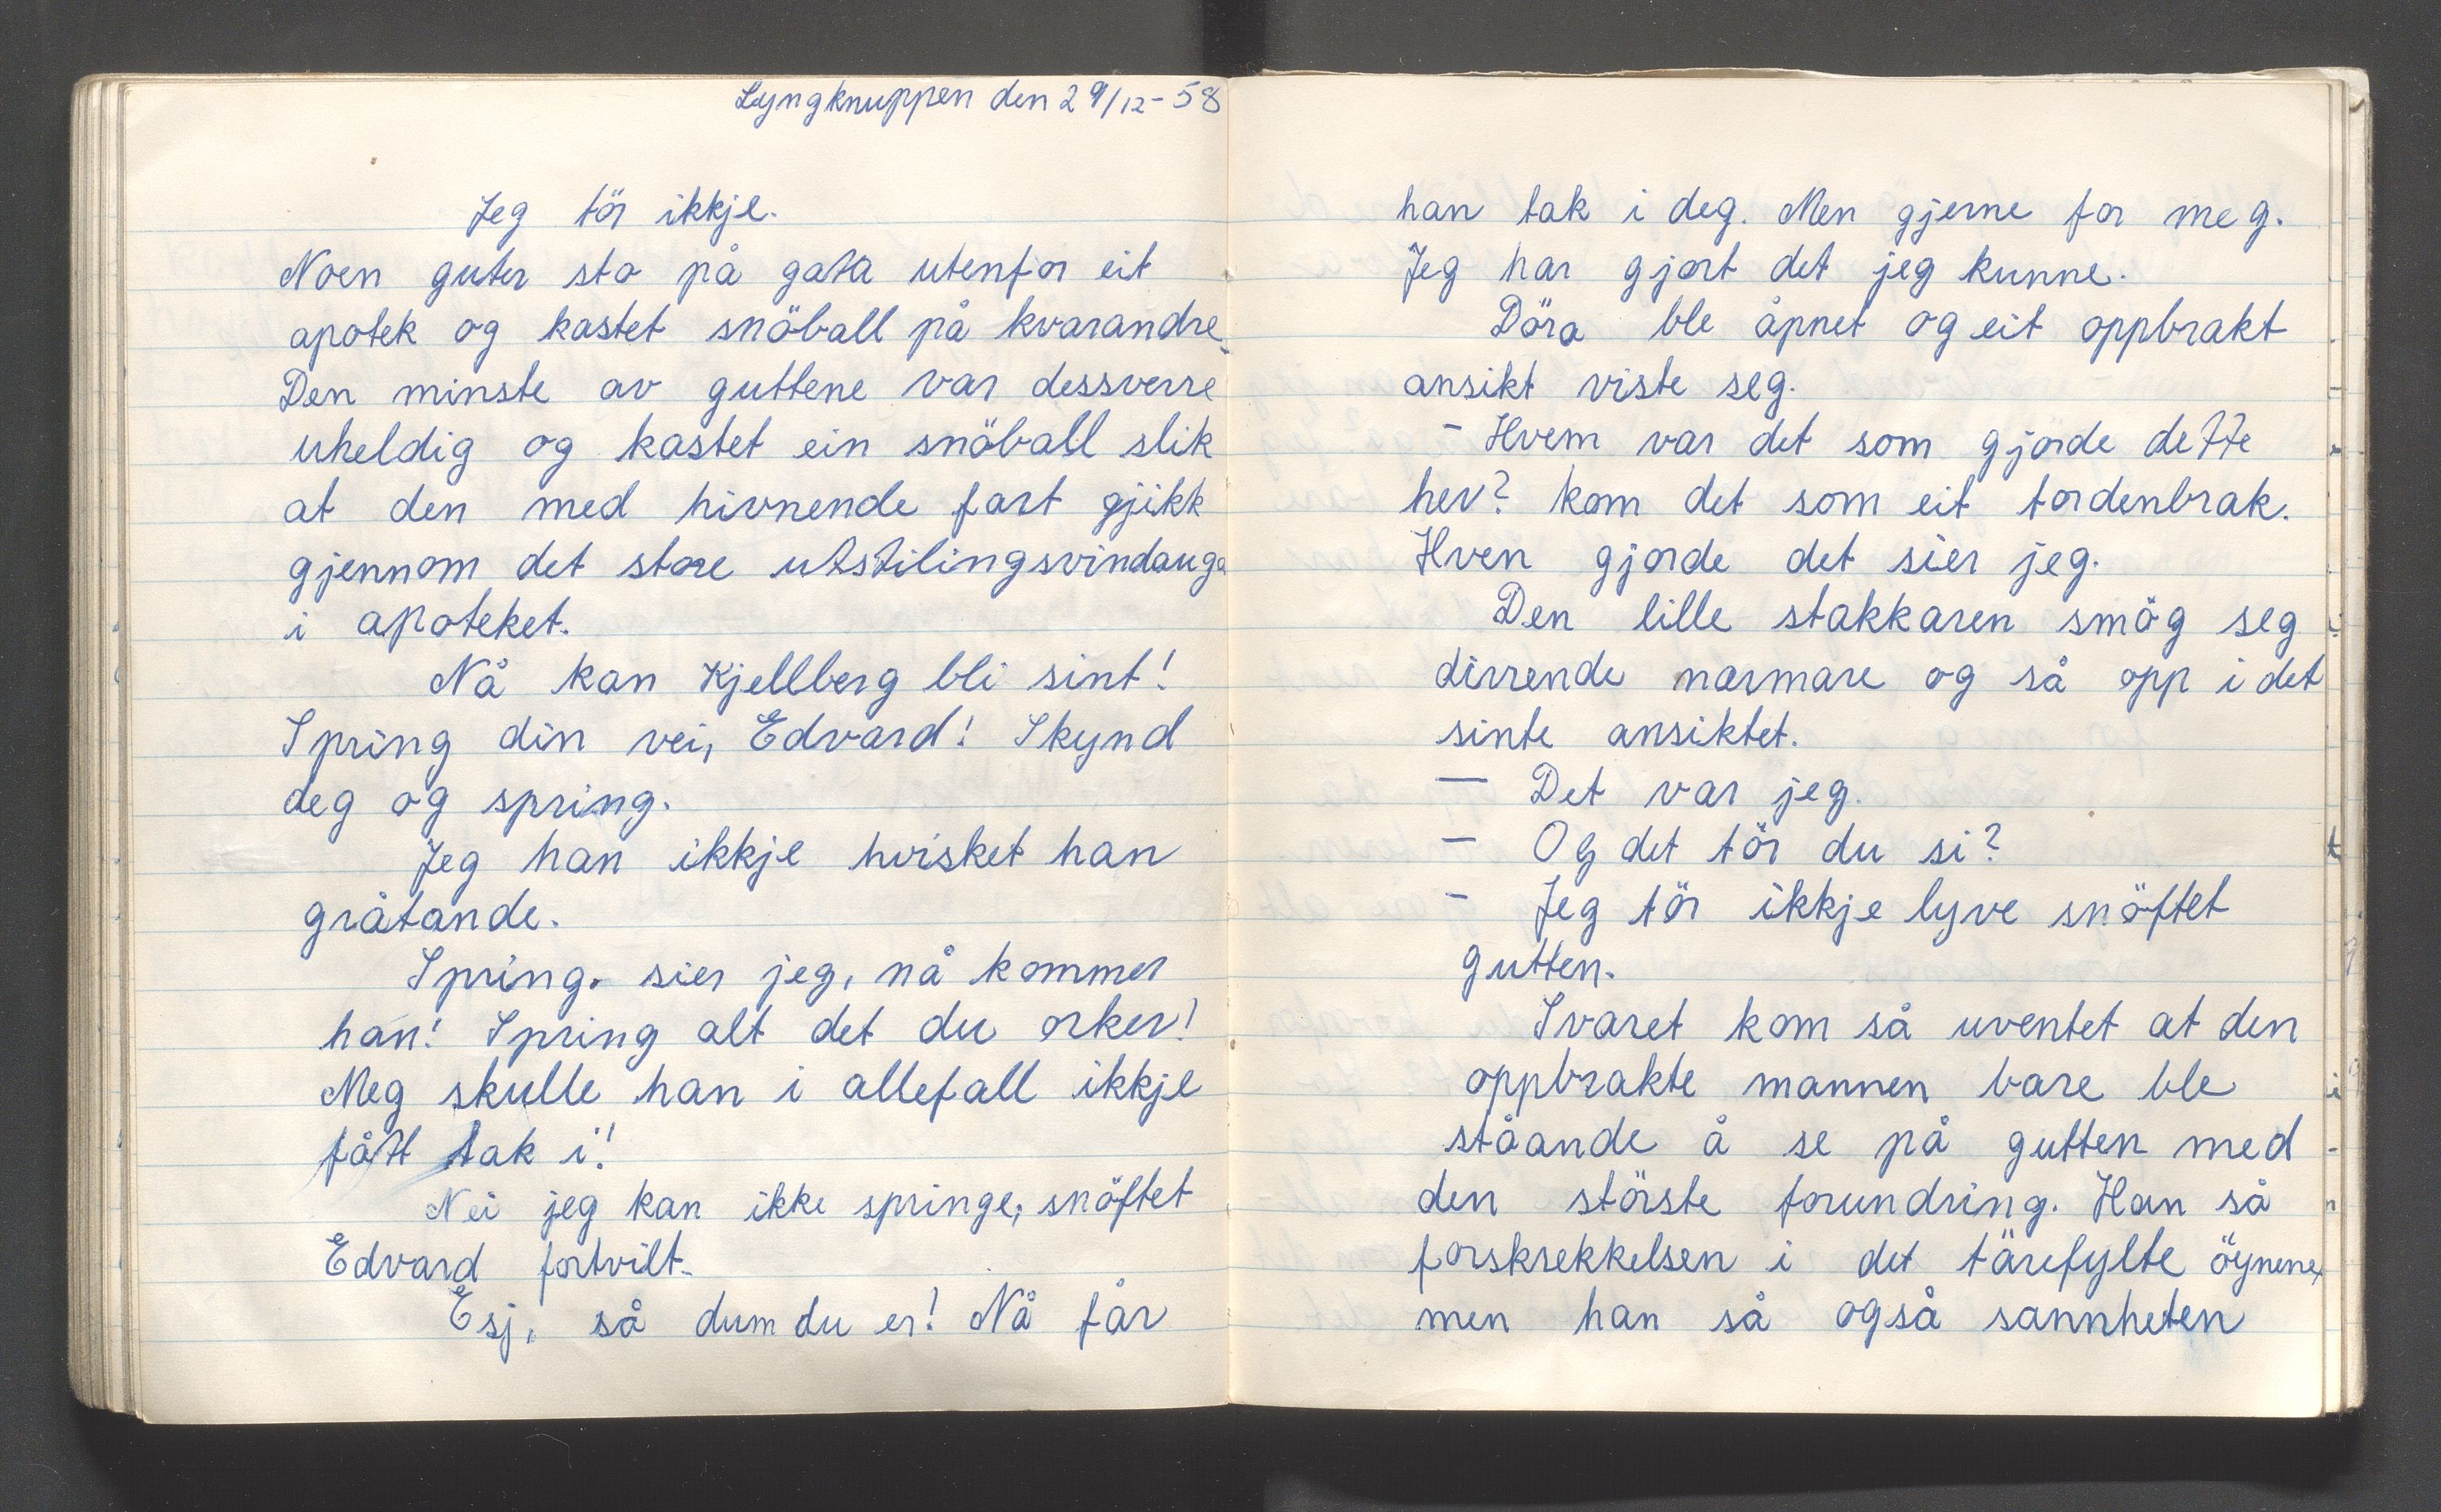 Lyngknuppen den 29/12-58
Jeg tör ikkje.
Noen guter sto på gata utenfor eit
apotek og kastet snöball på kvarandre.
Den minste av guttene var dessverre
uheldig og kastet ein snöball slik
at den med hivnende fart gjikk
gjennom det store utstilingsvindauga
i apoteket.
Nå kan Kjellberg bli sint!
Spring din vei, Edvard! Skynd
deg og spring.
Jeg han ikkje hvisket han
gråtande.
Spring. sier jeg, nå kommer
han! Spring alt det du orker!
Meg skulle han i allefall ikkje
fått tak i!
Nei jeg kan ikke springe, snöftet
Edvard fortvilt.
Esj, så dum du er! Nå får
han tak i deg. Men gjerne for meg.
Jeg har gjort det jeg kunne.
Döra ble åpnet og eit oppbrakt
ansikt viste seg.
- Hvem var det som gjorde dette
her? kom det som eit tordenbrak.
Hven gjorde det sier jeg.
Den lille stakkaren smög seg
dirrende narmare og så opp i det
sinte ansiktet.
- Det var jeg.
- Og det tör du si?
- Jeg tör ikkje lyve snöftet
gutten.
Svaret kom så uventet at den
oppbrakte mannen bare ble
ståande å se på gutten med
den störste forundring. Han så
forskrekkelsen i det tårefylte öynene,
men han så også sannheten